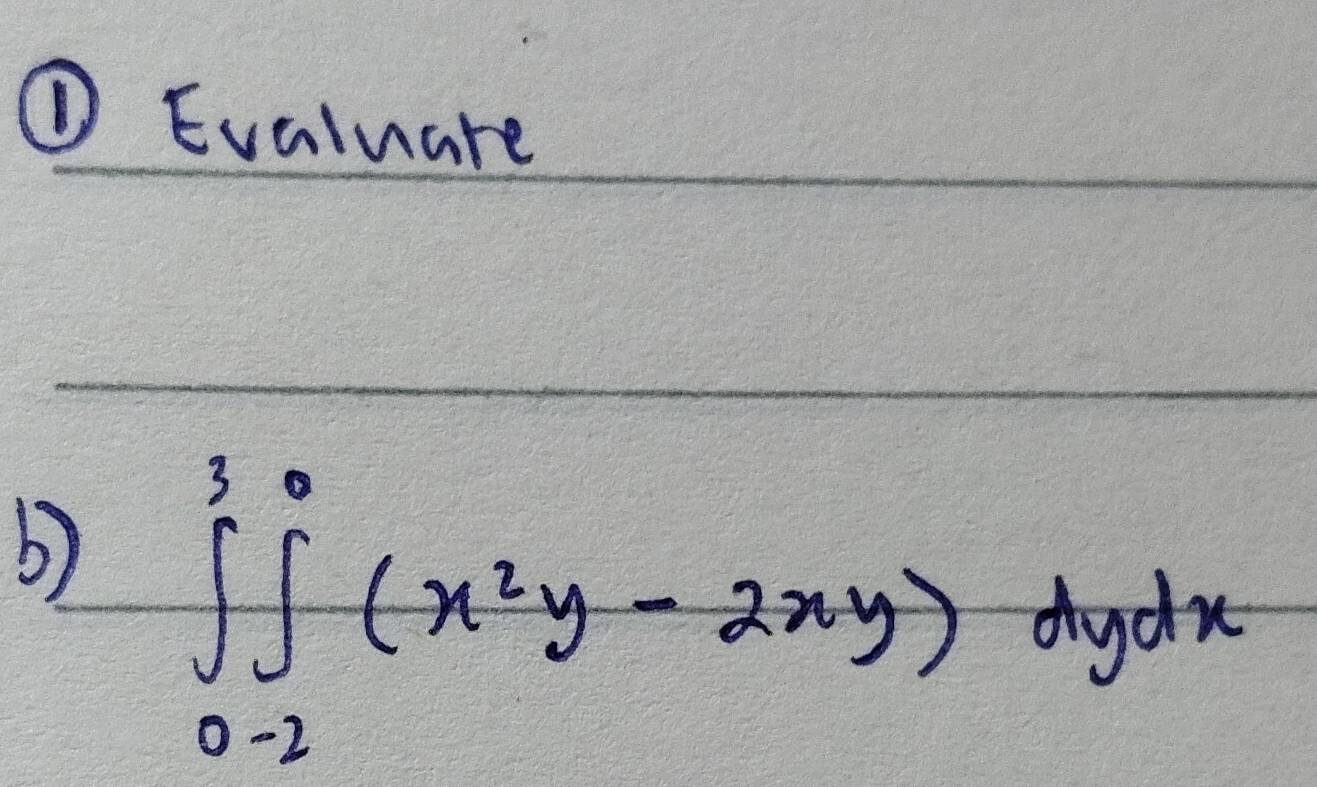 ① Evaluate
b) ∫₀³ ∫₋₂⁰ (x²y - 2xy) dydx